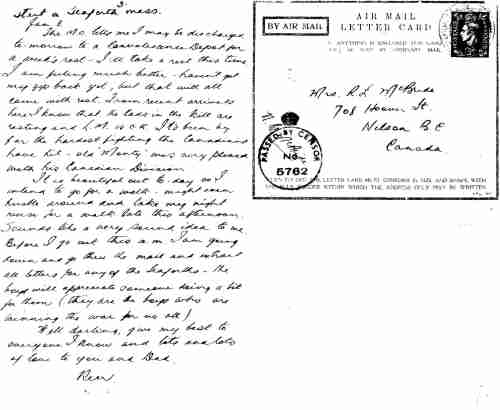 start a Seaforth mess.
The M.O. tells me I may be discharged
to-morrow to a Convalescence Depot for
a week's rest - I'll take a rest this time
I am feeling much better - haven't got
my pep back yet, but that will all
come with rest. From recent arrivals
here I know that the lads in the Bn are
resting and L.M.B. is O.K. It's been by
far the hardest fighting the Canadians
have hit - old "Monty" was very pleased
with his Canadian Division.
It is beautiful out to-day so I
intend to go for a walk - might even
hustle around and take my night
nurse for a walk late this afternoon.
Sounds like a very sound idea to me.
Before I go out this a.m. I am going
down and go thru the mail and extract
all letters for any of the Seaforths - the
boys will appreciate someone doing a bit
for them (they are the boys who are
winning the war for us all)
Well darling, give my best to
everyone I know and lots and lots
of love to you and Dad.
BY AIR MAIL
AIR MAIL
LETTER CARD
IF ANYTHING IS ENCLOSED THIS CARD
WILL BE SENT BY ORDINARY MAIL.
Mrs. R.L. McBride
708 Hoover St.
Nelson B C
Canada
PASSED BY CENSOR
No
5762